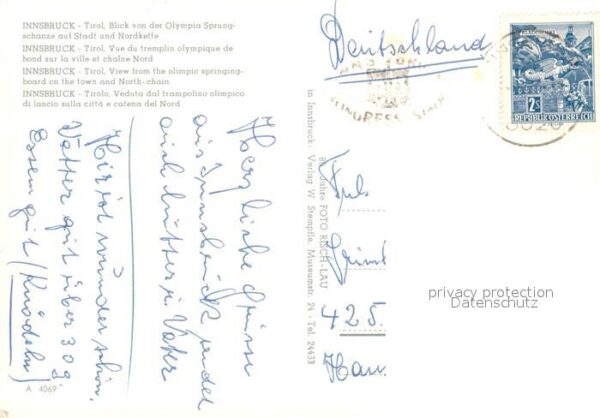 INNSBRUCK - Tirol, Blick von der Olympia Sprung-
schanze auf Stadt und Nordkette
INNSBRUCK - Tirol, Vue du tremplin olympique de
bond sur la ville et chaîne Nord
INNSBRUCK - Tirol, View from the olimpic springing-
board on the town and North-chain
INNSBRUCK - Tirolo, Veduta dal trampolino olimpico
di lancio sulla città e catena del Nord
Herzliche Grüsse
aus Innsbruck sendet
euch Mutter u. Vater
Hier ist wunder schön,
Wetter gut über 30 g.
Essen gut (Knödeln)
A 4069
in Innsbruck · Verlag W. Stempfle, Museumstr. 24 · Tel. 24433
Jahre FOTO RISCH-LAU
Deutschland
KONGRESS
2S
REPUBLIK ÖSTERREICH
6020
425
privacy protection
Datenschutz